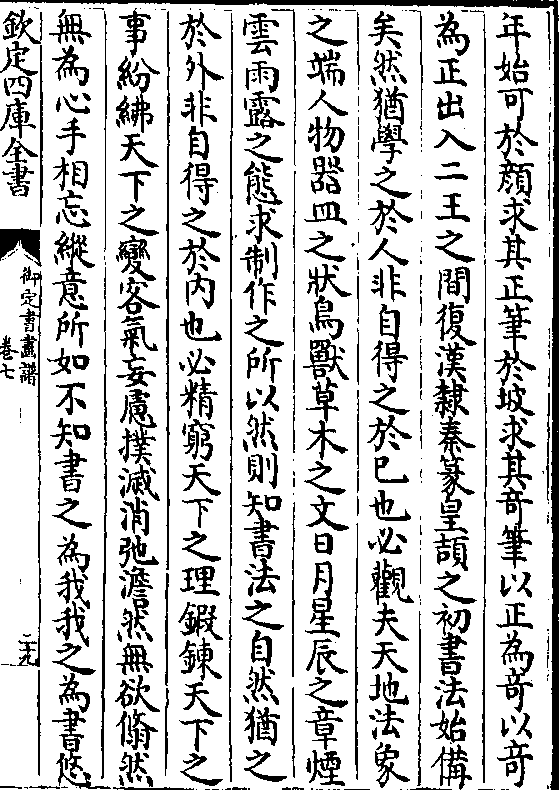 年始可於顔求其正筆於坡求其竒筆以正為竒以竒
為正出入二王之間復漢隷秦篆皇頡之初書法始備
矣然猶學之於人非自得之於已也必觀夫天地法象
之端人物器皿之狀鳥獸草木之文日月星辰之章煙
雲雨露之態求制作之所以然則知書法之自然猶之
於外非自得之於内也必精窮天下之理鍜鍊天下之
事紛紼天下之變客氣妄慮撲滅消弛澹然無欲翛然
無為心手相忘縱意所如不知書之為我我之為書悠
欽定四庫全書
御定書畫譜
卷七
二十九